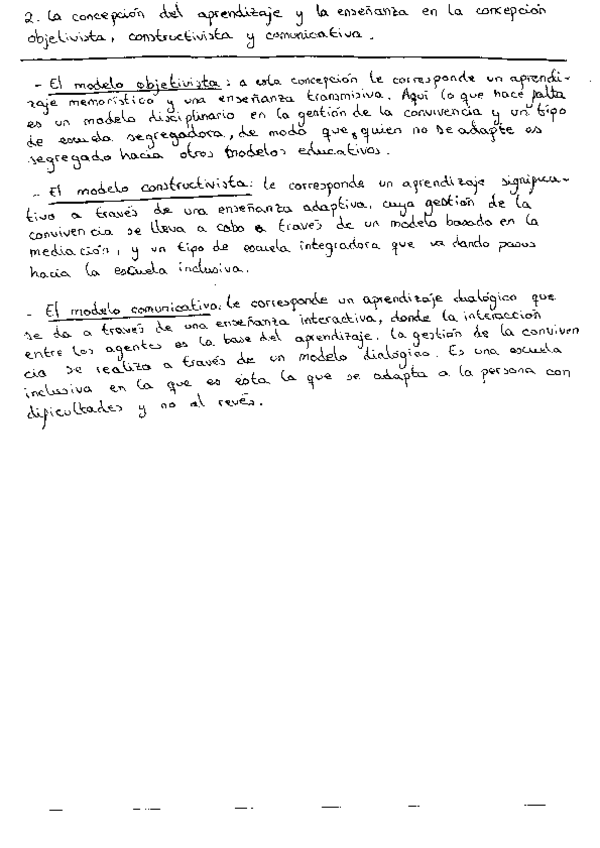 2. La concepción del aprendizaje y la enseñanza en la concepción
objetivista, constructivista y comunicativa.
- El modelo objetivista: a esta concepción le corresponde un aprendi-
zaje memorístico y una enseñanza transmisiva. Aquí lo que hace falta
es un modelo disciplinario en la gestión de la convivencia y un tipo
de escuela segregadora, de modo que, quien no se adapte es
segregado hacia otros modelos educativos.
- El modelo constructivista: le corresponde un aprendizaje significa-
tivo a través de una enseñanza adaptiva, cuya gestión de la
convivencia se lleva a cabo a través de un modelo basado en la
mediación, y un tipo de escuela integradora que va dando pasos
hacia la escuela inclusiva.
- El modelo comunicativo: le corresponde un aprendizaje dialógico que
se da a través de una enseñanza interactiva, donde la interacción
entre los agentes es la base del aprendizaje. La gestión de la conviven
cia se realiza a través de un modelo dialógico. Es una escuela
inclusiva en la que es ésta la que se adapta a la persona con
dificultades y no al revés.